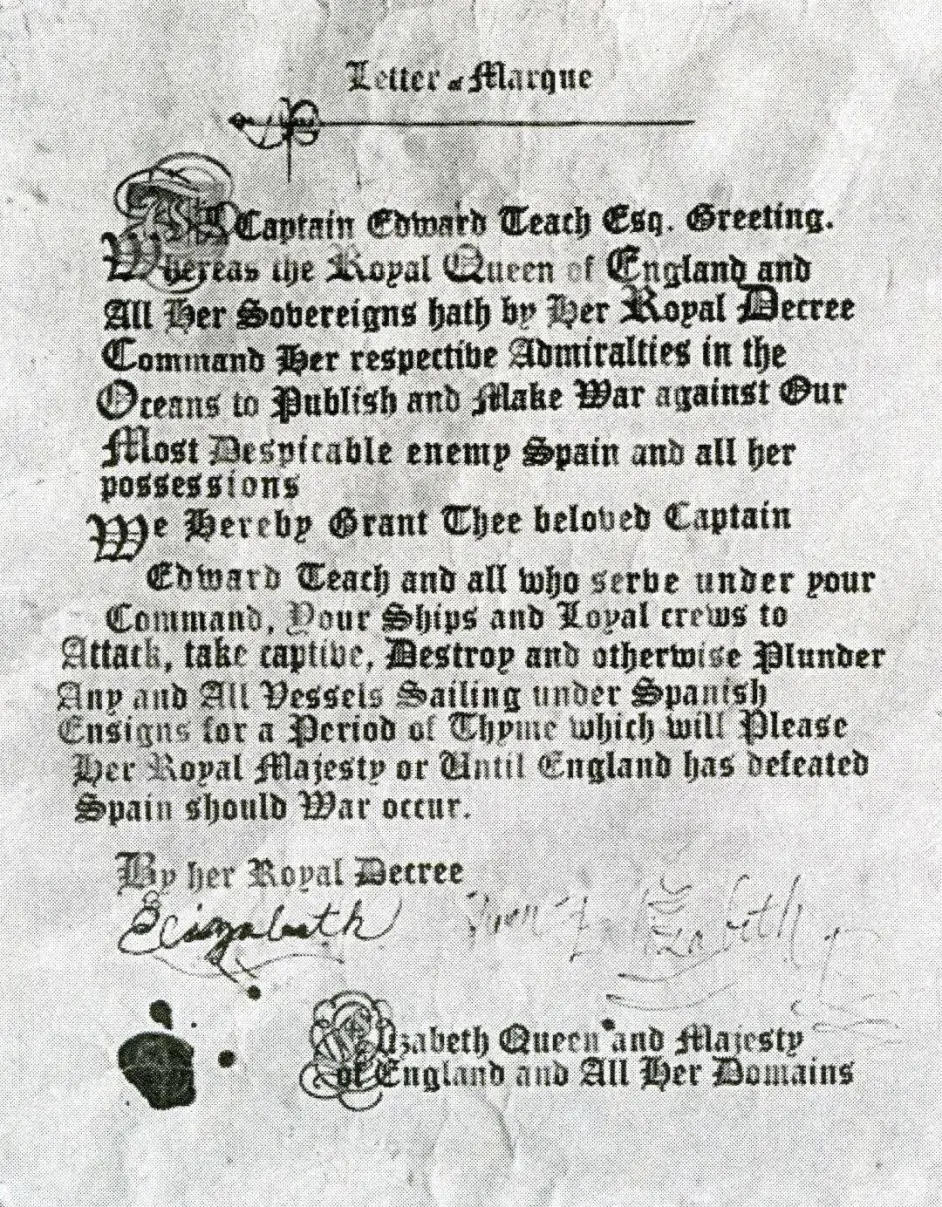 Letter of Marque
Captain Edward Teach Esq. Greeting.
Whereas the Royal Queen of England and
All Her Sovereigns hath by Her Royal Decree
Command Her respective Admiralties in the
Oceans to Publish and Make War against Our
Most Despicable enemy Spain and all her
possessions
We Hereby Grant Thee beloved Captain
Edward Teach and all who serve under your
Command, Your Ships and Loyal crews to
Attack, take captive, Destroy and otherwise Plunder
Any and All Vessels Sailing under Spanish
Ensigns for a Period of Thyme which will Please
Her Royal Majesty or Until England has defeated
Spain should War occur.
By her Royal Decree
Elizabeth
Elizabeth Queen and Majesty
of England and All Her Domains